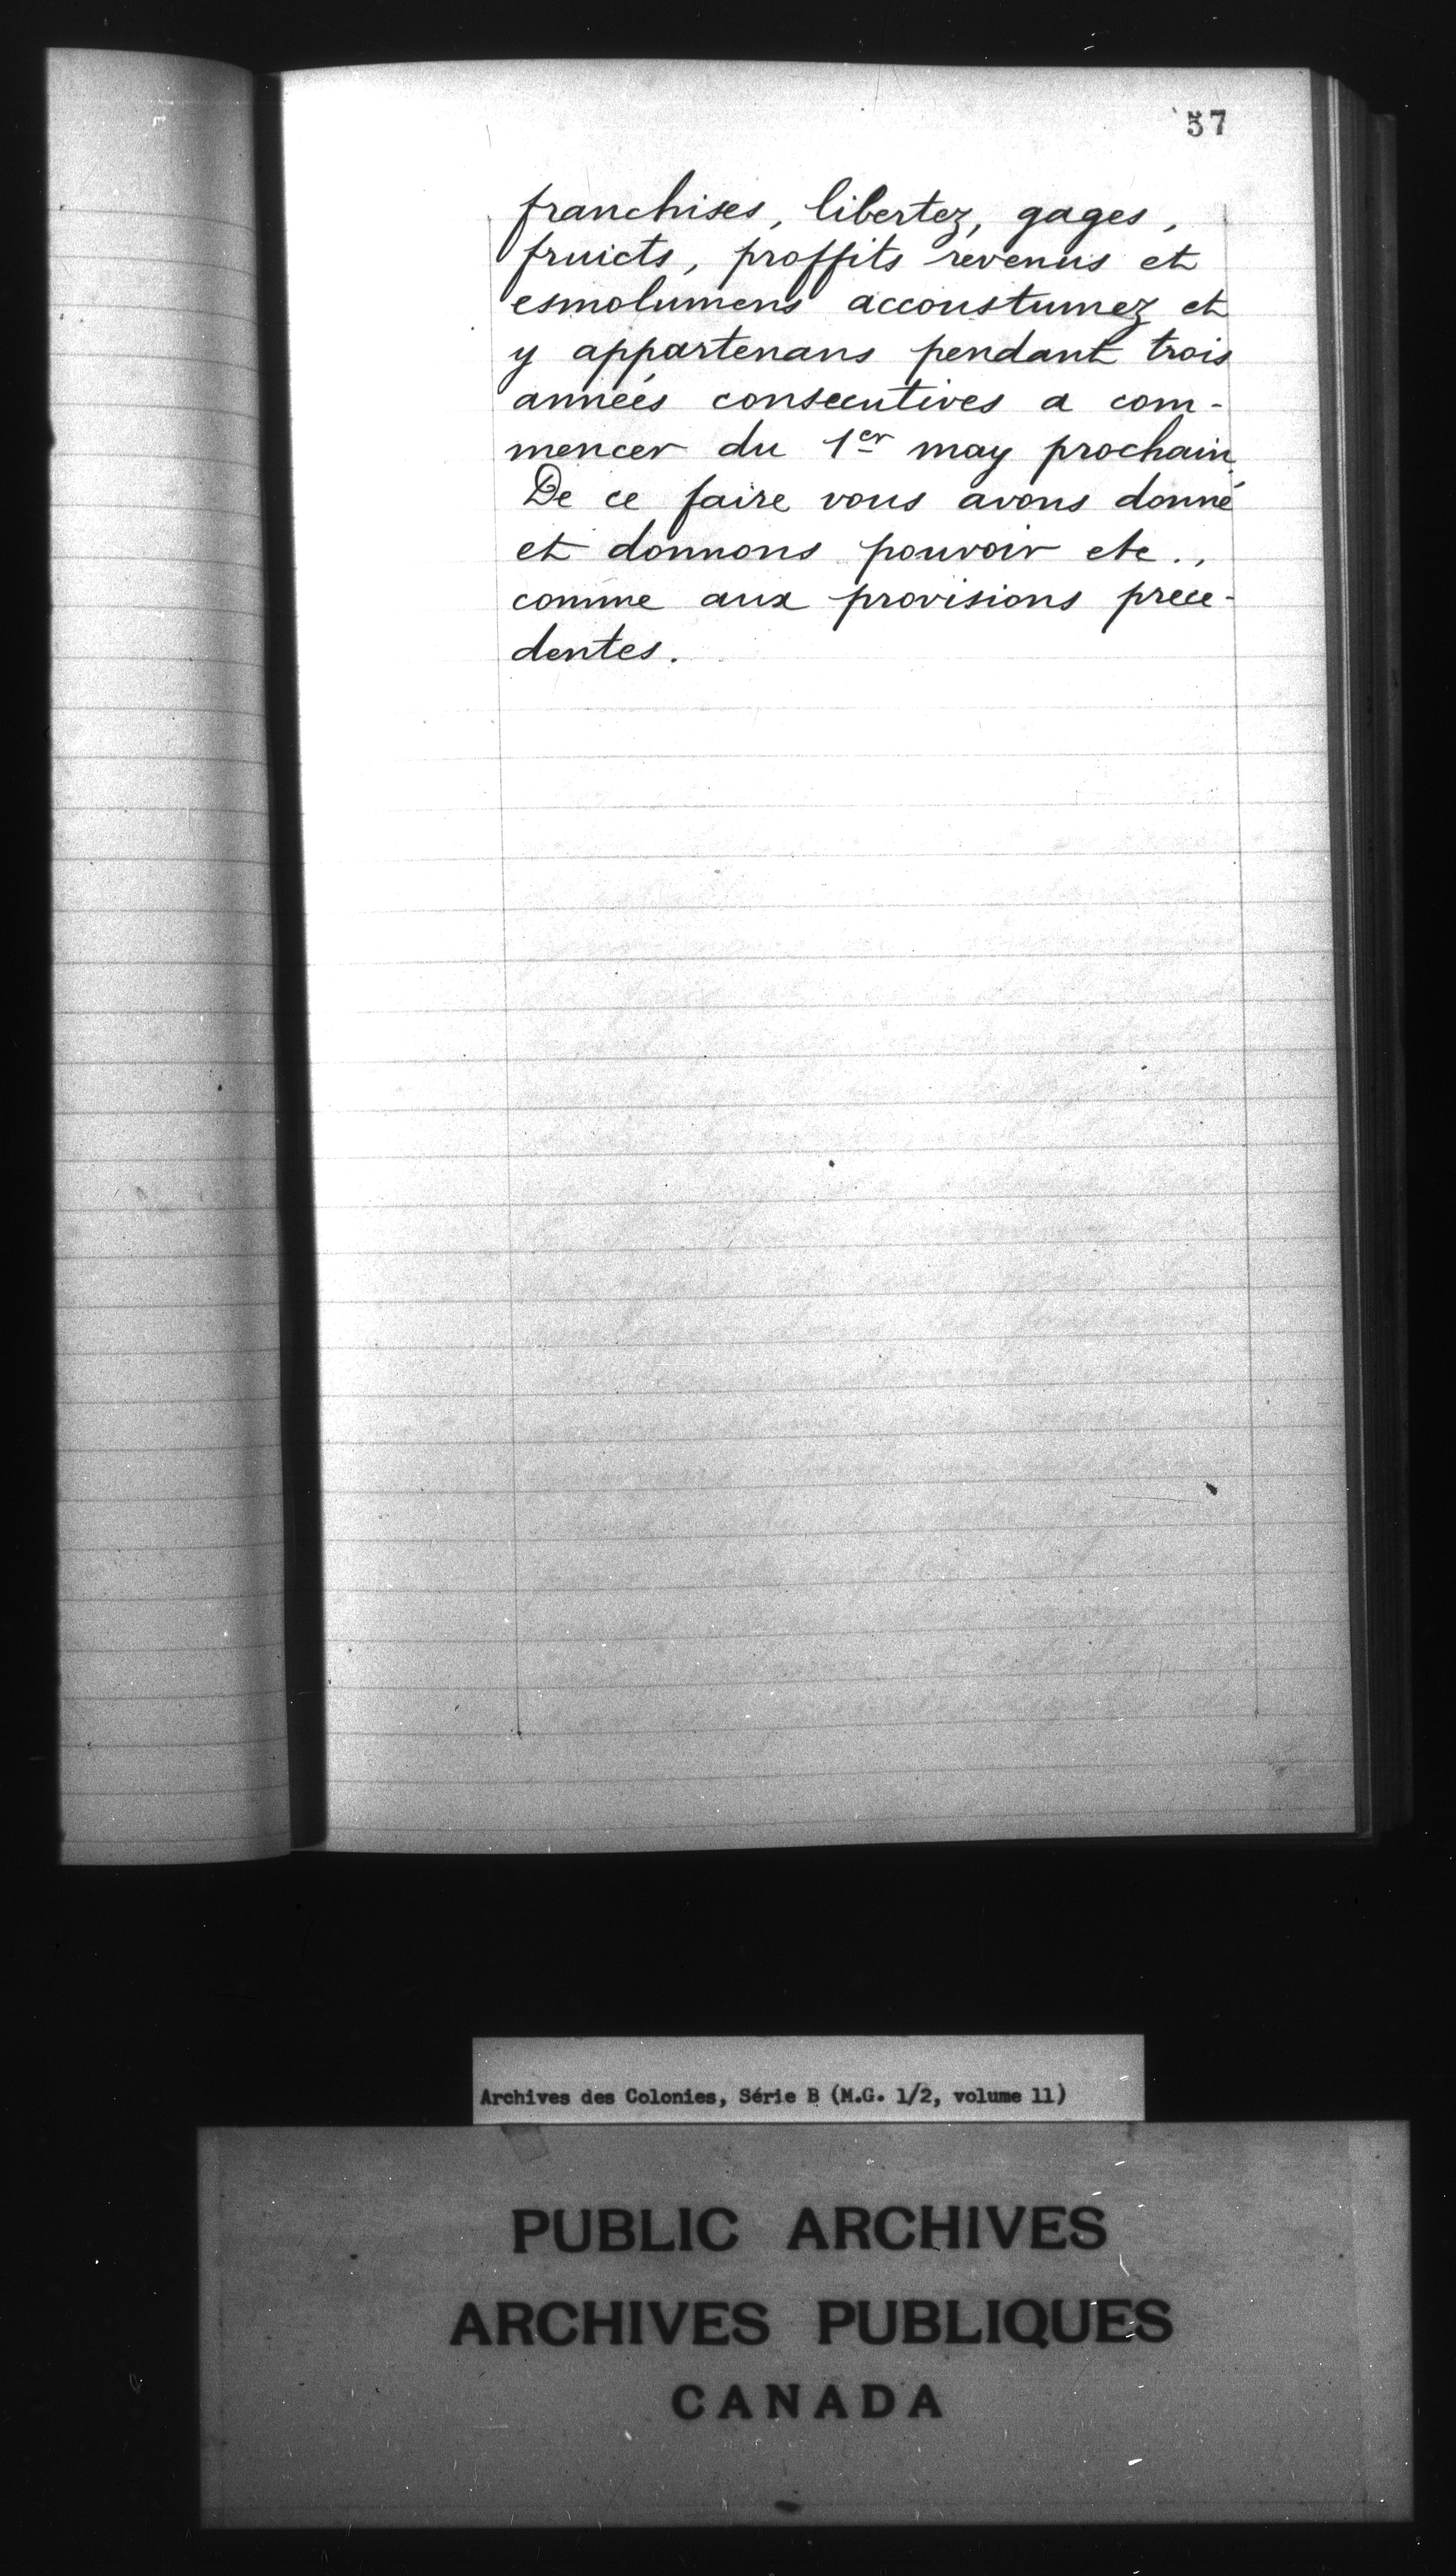 57
franchises, libertez, gages,
fruicts, proffits revenus et
esmolumens accoustumez et
y appartenans pendant trois
années consecutives a com-
mencer du 1er may prochain.
De ce faire vous avons donné
et donnons pouvoir etc.,
comme aux provisions prece-
dentes.
Archives des Colonies, Série B (M.G. 1/2, volume 11)
PUBLIC ARCHIVES
ARCHIVES PUBLIQUES
CANADA